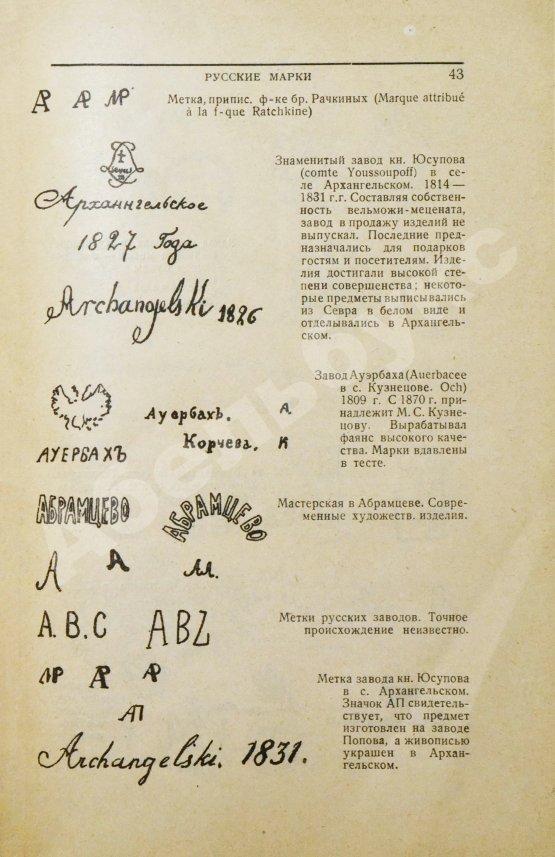 РУССКИЕ МАРКИ 43
АР АР МР
Метка, припис. ф-ке бр. Рачкиных (Marque attribué
à la f-que Ratchkine)
Знаменитый завод кн. Юсупова
(comte Youssoupoff) в се-
ле Архангельском. 1814—
1831 г.г. Составляя собствен-
ность вельможи-мецената,
завод в продажу изделий не
выпускал. Последние пред-
назначались для подарков
гостям и посетителям. Изде-
лия достигали высокой сте-
пени совершенства; некото-
рые предметы выписывались
из Севра в белом виде и
отделывались в Архангель-
ском.
Архангельское
1827 Года
Archangelski 1826
Завод Ауэрбаха (Auerbacee
в с. Кузнецове. Och)
1809 г. С 1870 г. при-
надлежит М. С. Кузне-
цову. Вырабатывал
фаянс высокого каче-
ства. Марки вдавлены
в тесте.
Ауербахъ. А.
Корчева. К
АУЕРБАХЪ
АБРАМЦЕВО АБРАМЦЕВО
Мастерская в Абрамцеве. Совре-
менные художеств. изделия.
А А Ал.
A.B.C ABZ
Метки русских заводов. Точное
происхождение неизвестно.
МР АР АР
АП
Archangelski. 1831.
Метка завода кн. Юсупова
в с. Архангельском.
Значок АП свидетель-
ствует, что предмет
изготовлен на заводе
Попова, а живописью
украшен в Архан-
гельском.